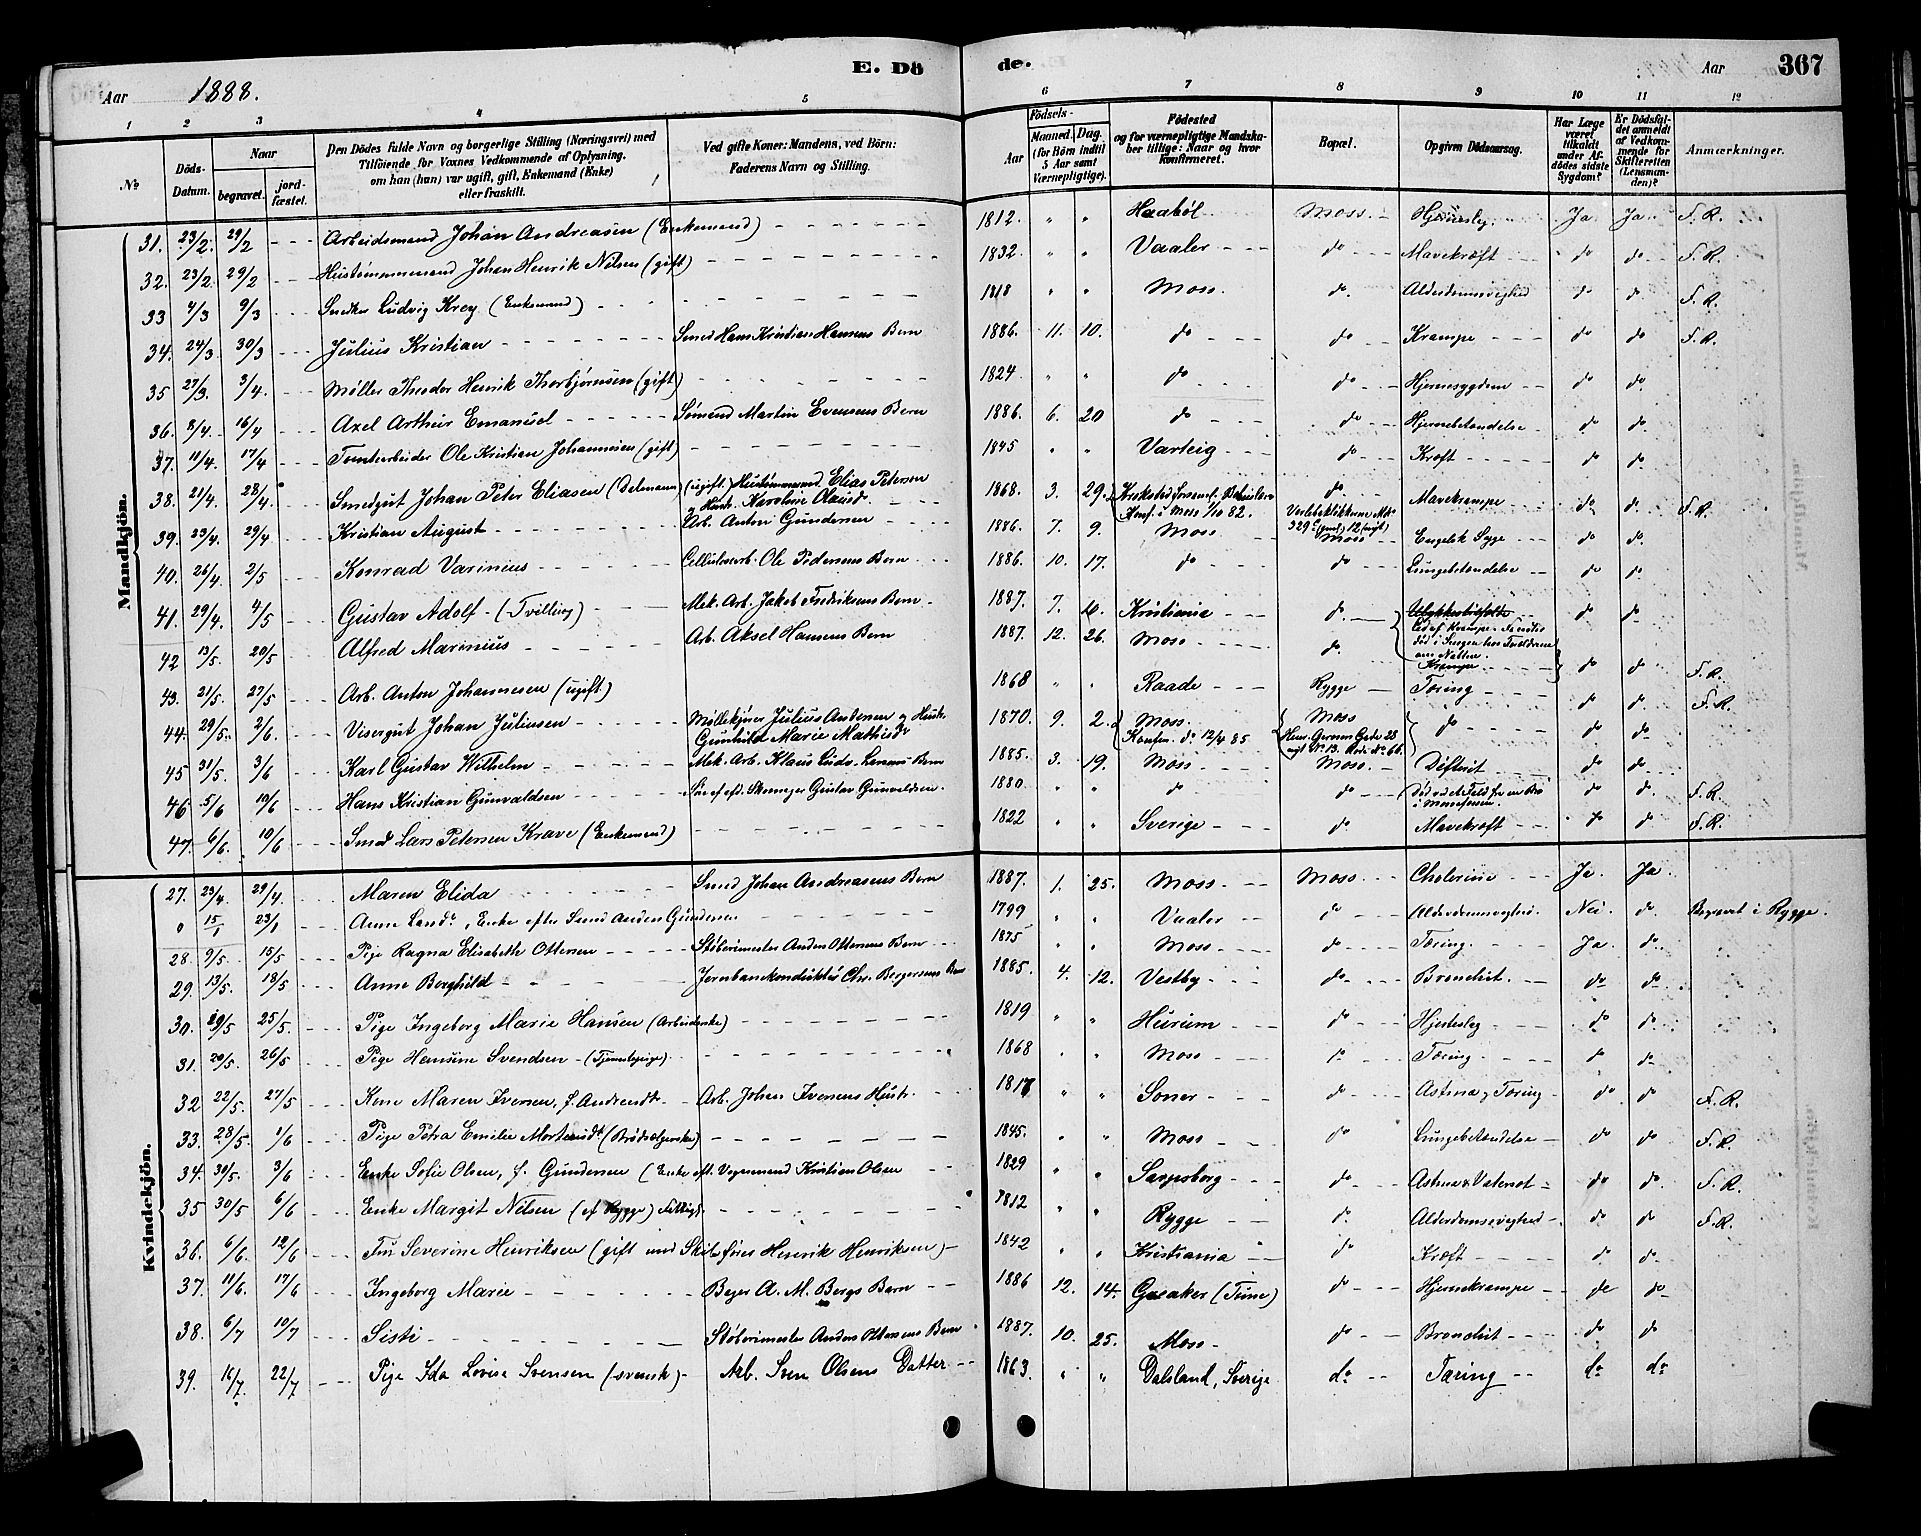 Aar 1888.
E. Dö
de.
Aar
367
1 2 3 4 5 6 7 8 9 10 11 12
No
Döds-Datum.
Naar
begravet.
jordfæstet.
Den Dødes fulde Navn og borgerlige Stilling (Næringsvei) med
Tilföiende for Voxnes Vedkommende af Oplysning,
om han (hun) var ugift, gift, Enkemand (Enke)
eller fraskilt.
Ved gifte Koner: Mandens, ved Börn:
Faderens Navn og Stilling.
Födsels-
Aar
Maaned. Dag.
(for Börn indtil 5 Aar samt Værnepligtige).
Födested
og for værnepligtige Mandskaber tillige: Naar og hvor konfirmeret.
Bopæl.
Opgiven Dödsaarsag.
Har Læge været tilkaldt under Afdödes sidste Sygdom?
Er Dödsfaldet anmeldt af Vedkommende for Skifteretten (Lensmanden)?
Anmærkninger.
Mandkjön.
31. 23/2. 29/2 Arbeidsmand Johan Andreasen (Enkemand) 1812. " " Haabøl Moss Hjerteslag. Ja Ja F. R.
32. 23/2 29/2 Hustømmermand Johan Henrik Nilsen (gift) 1832. " " Vaaler do Mavekræft do do F. R.
33 4/3 9/3 Snedker Ludvig Krey (Enkemand) 1818 " " Moss do. Alderdomssvaghed do do. F. R.
34. 24/3 30/3 Julius Kristian Smed Hans Kristian Hansens Barn 1886. 11. 10. do do Krampe do do F. R.
35 27/3. 3/4. Møller Theodor Henrik Thorbjørnsen (gift) 1824 " " do do Hjernesygdom do do.
36. 8/4. 16/4 Axel Arthur Emanuel Sømand Martin Evensens Barn 1886. 6. 20 do do Hjernebetændelse do do.
37. 11/4. 17/4 Tomtearbeider Ole Kristian Johannesen (gift) 1845 " " Varteig do Kræft do do
38. 21/4. 28/4. Smedgut Johan Peter Eliasen (Delmann) (ugift.) Hustømmermand Elias Petersen
g Hust. Karoline Olausd. 1868. 3. 29. Konf. i Moss 1/10 82. do Mavekrampe do do F. R.
39. 23/4. 29/4 Kristian August Arb. Anton Gundersen 1886. 7. 9. Moss Moss Engelsk Syge do do.
40. 26/4 2/5 Konrad Varinius Cellulosearb. Ole Pedersens Barn 1886. 10. 17. do do Lungebetændelse do do.
41. 29/4. 4/5 Gustav Adolf (Tvilling) Mek. Arb. Jakob Fredriksens Barn 1887. 7. Kristiania do do do
42 13/5. 20/5 Alfred Marinius Arb. Aksel Hansens Barn 1887. 12. 26. Moss do.
Led af Krampe. Fandtes
død i Sengen hos Forældrene
om Natten.
Krampe do do F. R.
43. 21/5. 27/5 Arb. Anton Johannesen (ugift) 1868 " " Raade Rygge Tæring do do F. R.
44. 29/5. 2/6. Visergut Johan Juliusen Møllekjører Julius Antonsen g Hust.
Gunhild Marie Mathisd. 1870. 9. 2. Moss. Konfm. do 12/4 85 Moss do do do
45 31/5. 3/6 Karl Gustav Wilhelm Mek. Arb. Klaus Ludv. Larsens Barn 1885. 3. 19. Moss Moss. Difterit do do
46. 5/6 10/6 Hans Kristian Gunvaldsen Søn af afd. Skomager Gustav Gunvaldsen. 1880. " " do do Død ved et Fald fra en Bro
i Mossefossen. do do. F. R.
47. 6/6. 10/6 Smed Lars Petersen Krave (Enkemand) 1822 " " Sverige do Mavekræft do do F. R.
Kvindekjön.
27. 23/4 29/4. Maren Elida Smed Johan Andreasens Barn 1887. 1. 25. Moss Moss Cholerine Ja Ja
0 15/1 23/1 Anne Larsd., Enke efter Smed Anders Gundersen 1799 " " Vaaler do Alderdomssvaghed. Nei. do. Begravet i Rygge.
28. 9/5. 15/5 Pige Ragna Elisabeth Ottersen Støberimester Anders Ottersens Barn 1875 " " Moss do Tæring. Ja do.
29. 13/5. 18/5 Anne Borghild Jernbanekonduktør Chr. Bergersens Barn 1885. 4. 12. Vestby do Bronchit. do do.
30. 19/5 25/5. Pige Ingeborg Marie Hansen (Arbeiderske) 1819 " " Hurum do Hjerteslag do do
31. 20/5. 26/5 Pige Hansine Svendsen (Tjenestepige) 1868 " " Moss do Tæring do do
32 22/5. 27/5 Kone Maren Iversen, f. Andreasdt. Arb. Johan Iversens Hust. 1817 " " Soner do Astma g Tæring do do F. R.
33. 28/5. 1/6 Pige Petra Emilie Mortensdt. (Brødsælgerske) 1845. " " Moss do Lungebetændelse do do F. R.
34. 30/5. 3/6 Enke Sofie Olsen, f. Gundersen (Enke eft. Vognmand Kristian Olsen 1829 " " Sarpsborg do Astma & Vatersot do do. F. R.
35 30/5 6/6 Enke Margit Nilsen (af Rygge) Fattigl. 1812 " " Rygge do. Alderdomssvaghed do do F. R.
36. 6/6. 12/6 Fru Severine Henriksen (gift med Skibsfører Henrik Henriksen) 1842 " " Kristiania do Kræft do do
37. 11/6. 17/6 Ingeborg Marie Bager A. M. Bergs Barn 1886 12. 14. Greaker (Tune) do Hjernekrampe do do
38. 6/7 10/7 Sisti Støberimester Anders Ottersens Barn 1887. 10. 25. Moss do Bronchit do do
39. 16/7. 22/7 Pige Ida Lovise Svensen (svensk) Arb. Sven Olsens Datter 1863. " " Dalsland, Sverige do Tæring do do